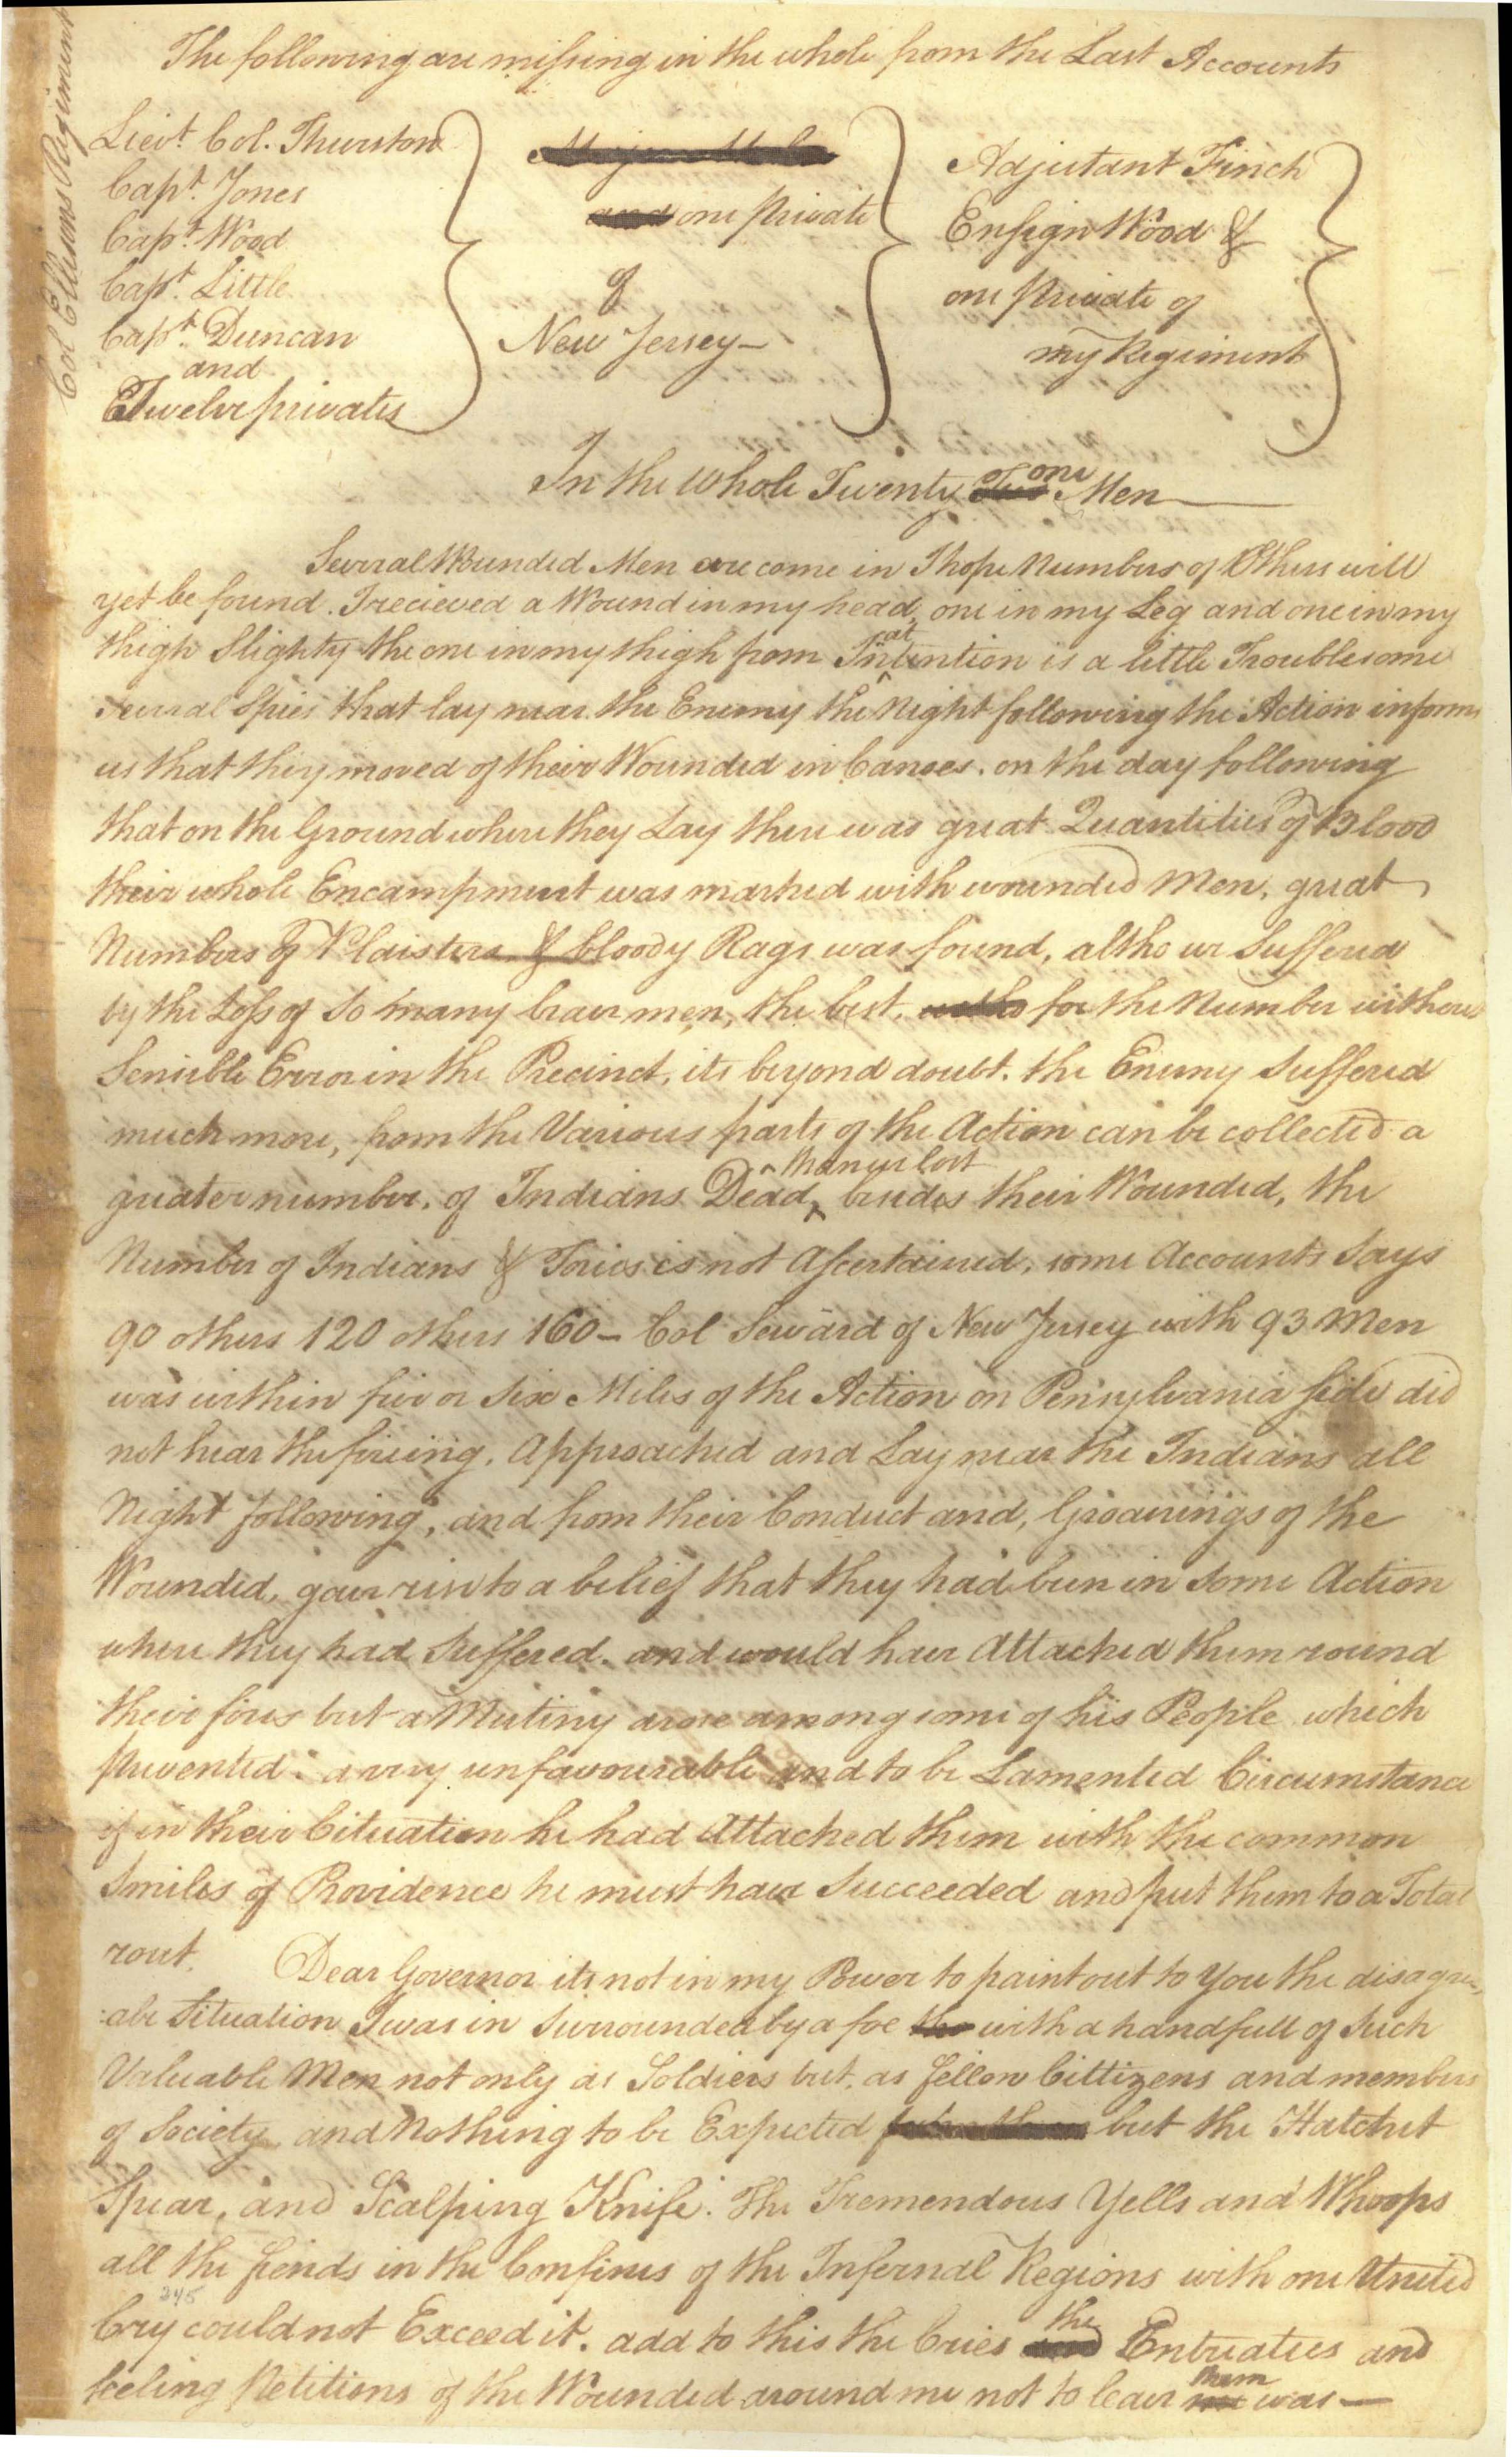 The following are missing in the whole from the Last Accounts
Col Ellisons Regiment
Lievt. Col. Thurston
Capt. Jones
Capt. Wood
Capt. Little
Capt. Duncan
and
Twelve privates
and one private
of
New Jersey—
Adjutant Finch
Ensign Wood &
one private of
my Regiment
In the whole Twenty Two one Men
Several Wounded Men are come in I hope Numbers of Others will
yet be found. I recieved a Wound in my head, one in my Leg and one in my
thigh Slighty the one in my thigh from Inatention is a little Troublesome
several Spies that lay near the Enemy the Night following the Action informs
us that they moved of their Wounded in Canoes. on the day following
that on the Ground where they Lay there was great Quantities of Blood
their whole Encampment was marked with wounded Men, great
Numbers of Plaisters & bloody Rags was found, altho we Suffered
by the Loss of So many brave men, the best, for the Number without
Sensible Error in the Precinct, its beyond doubt. the Enemy Suffered
much more, from the Various parts of the Action can be collected a
greater number, of Indians Dead than we lost besides their Wounded, the
Number of Indians & Tories is not Ascertained, some Accounts Says
90 others 120 others 160— Col Seward of New Jersey with 93 Men
was within five or Six Miles of the Action on Pensylvania side did
not hear the fireing. Approached and Lay near the Indians all
Night following, and from their Conduct and, Groanings of the
Wounded, gave rise to a belief that they had been in some Action
where they had Suffered. and would have Attacked them round
their fires but a Mutiny arose among some of his People which
prevented. a very unfavourable and to be Lamented Circumstance
if in their Cituation he had Attacked them with the common
Smiles of Providence he must have Succeeded and put them to a Total
rout. Dear Governor its not in my Power to paint out to You the disagree
:able Situation I was in Surrounded by a foe the with a handfull of Such
Valuable Men not only as Soldiers but, as fellow Cittizens and members
of Society, and Nothing to be Expected but the Hatchet
Spear, and Scalping Knife. The Tremendous Yells and Whoops
all the fiends in the Confines of the Infernal Regions with one United
245
Cry could not Exceed it. add to this the Cries and the Entreaties and
feeling Petitions of the Wounded around me not to leave me them was—